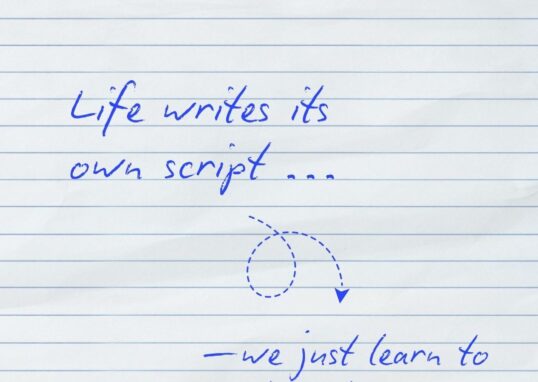 Life writes its
own script ...
—we just learn to